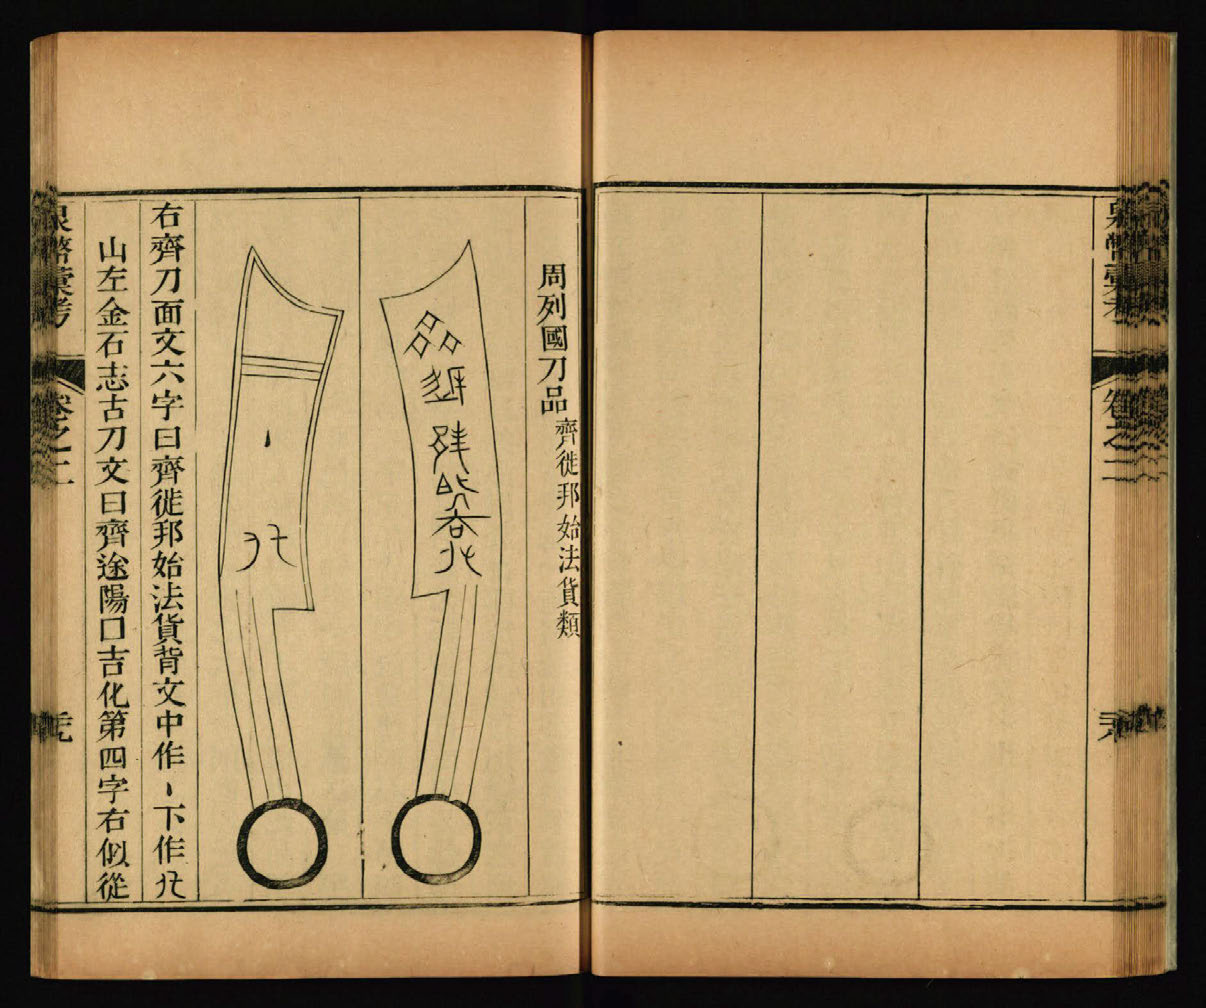 泉幣彙考
卷之二
周列國刀品 齊徙邦始法貨類
右齊刀面文六字曰齊徙邦始法貨背文中作丶下作
山左金石志古刀文曰齊途陽囗吉化第四字右似從
泉幣彙考
卷之二